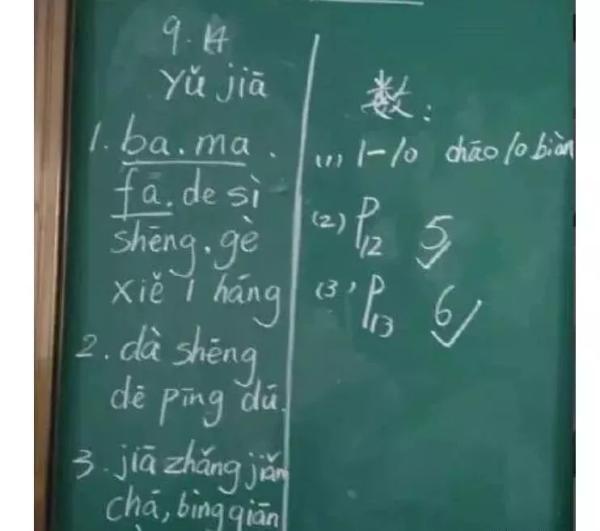 9.14
yǔ jiā
1. ba. ma.
fā. de sì
shēng. gè
xiě 1 háng
2. dà shēng
dē pīng dú.
3. jiā zhǎng jiǎn
chá, bìng qiān
数:
(1) 1-10 chāo 10 biàn
(2) P12 5✓
(3) P13 6✓